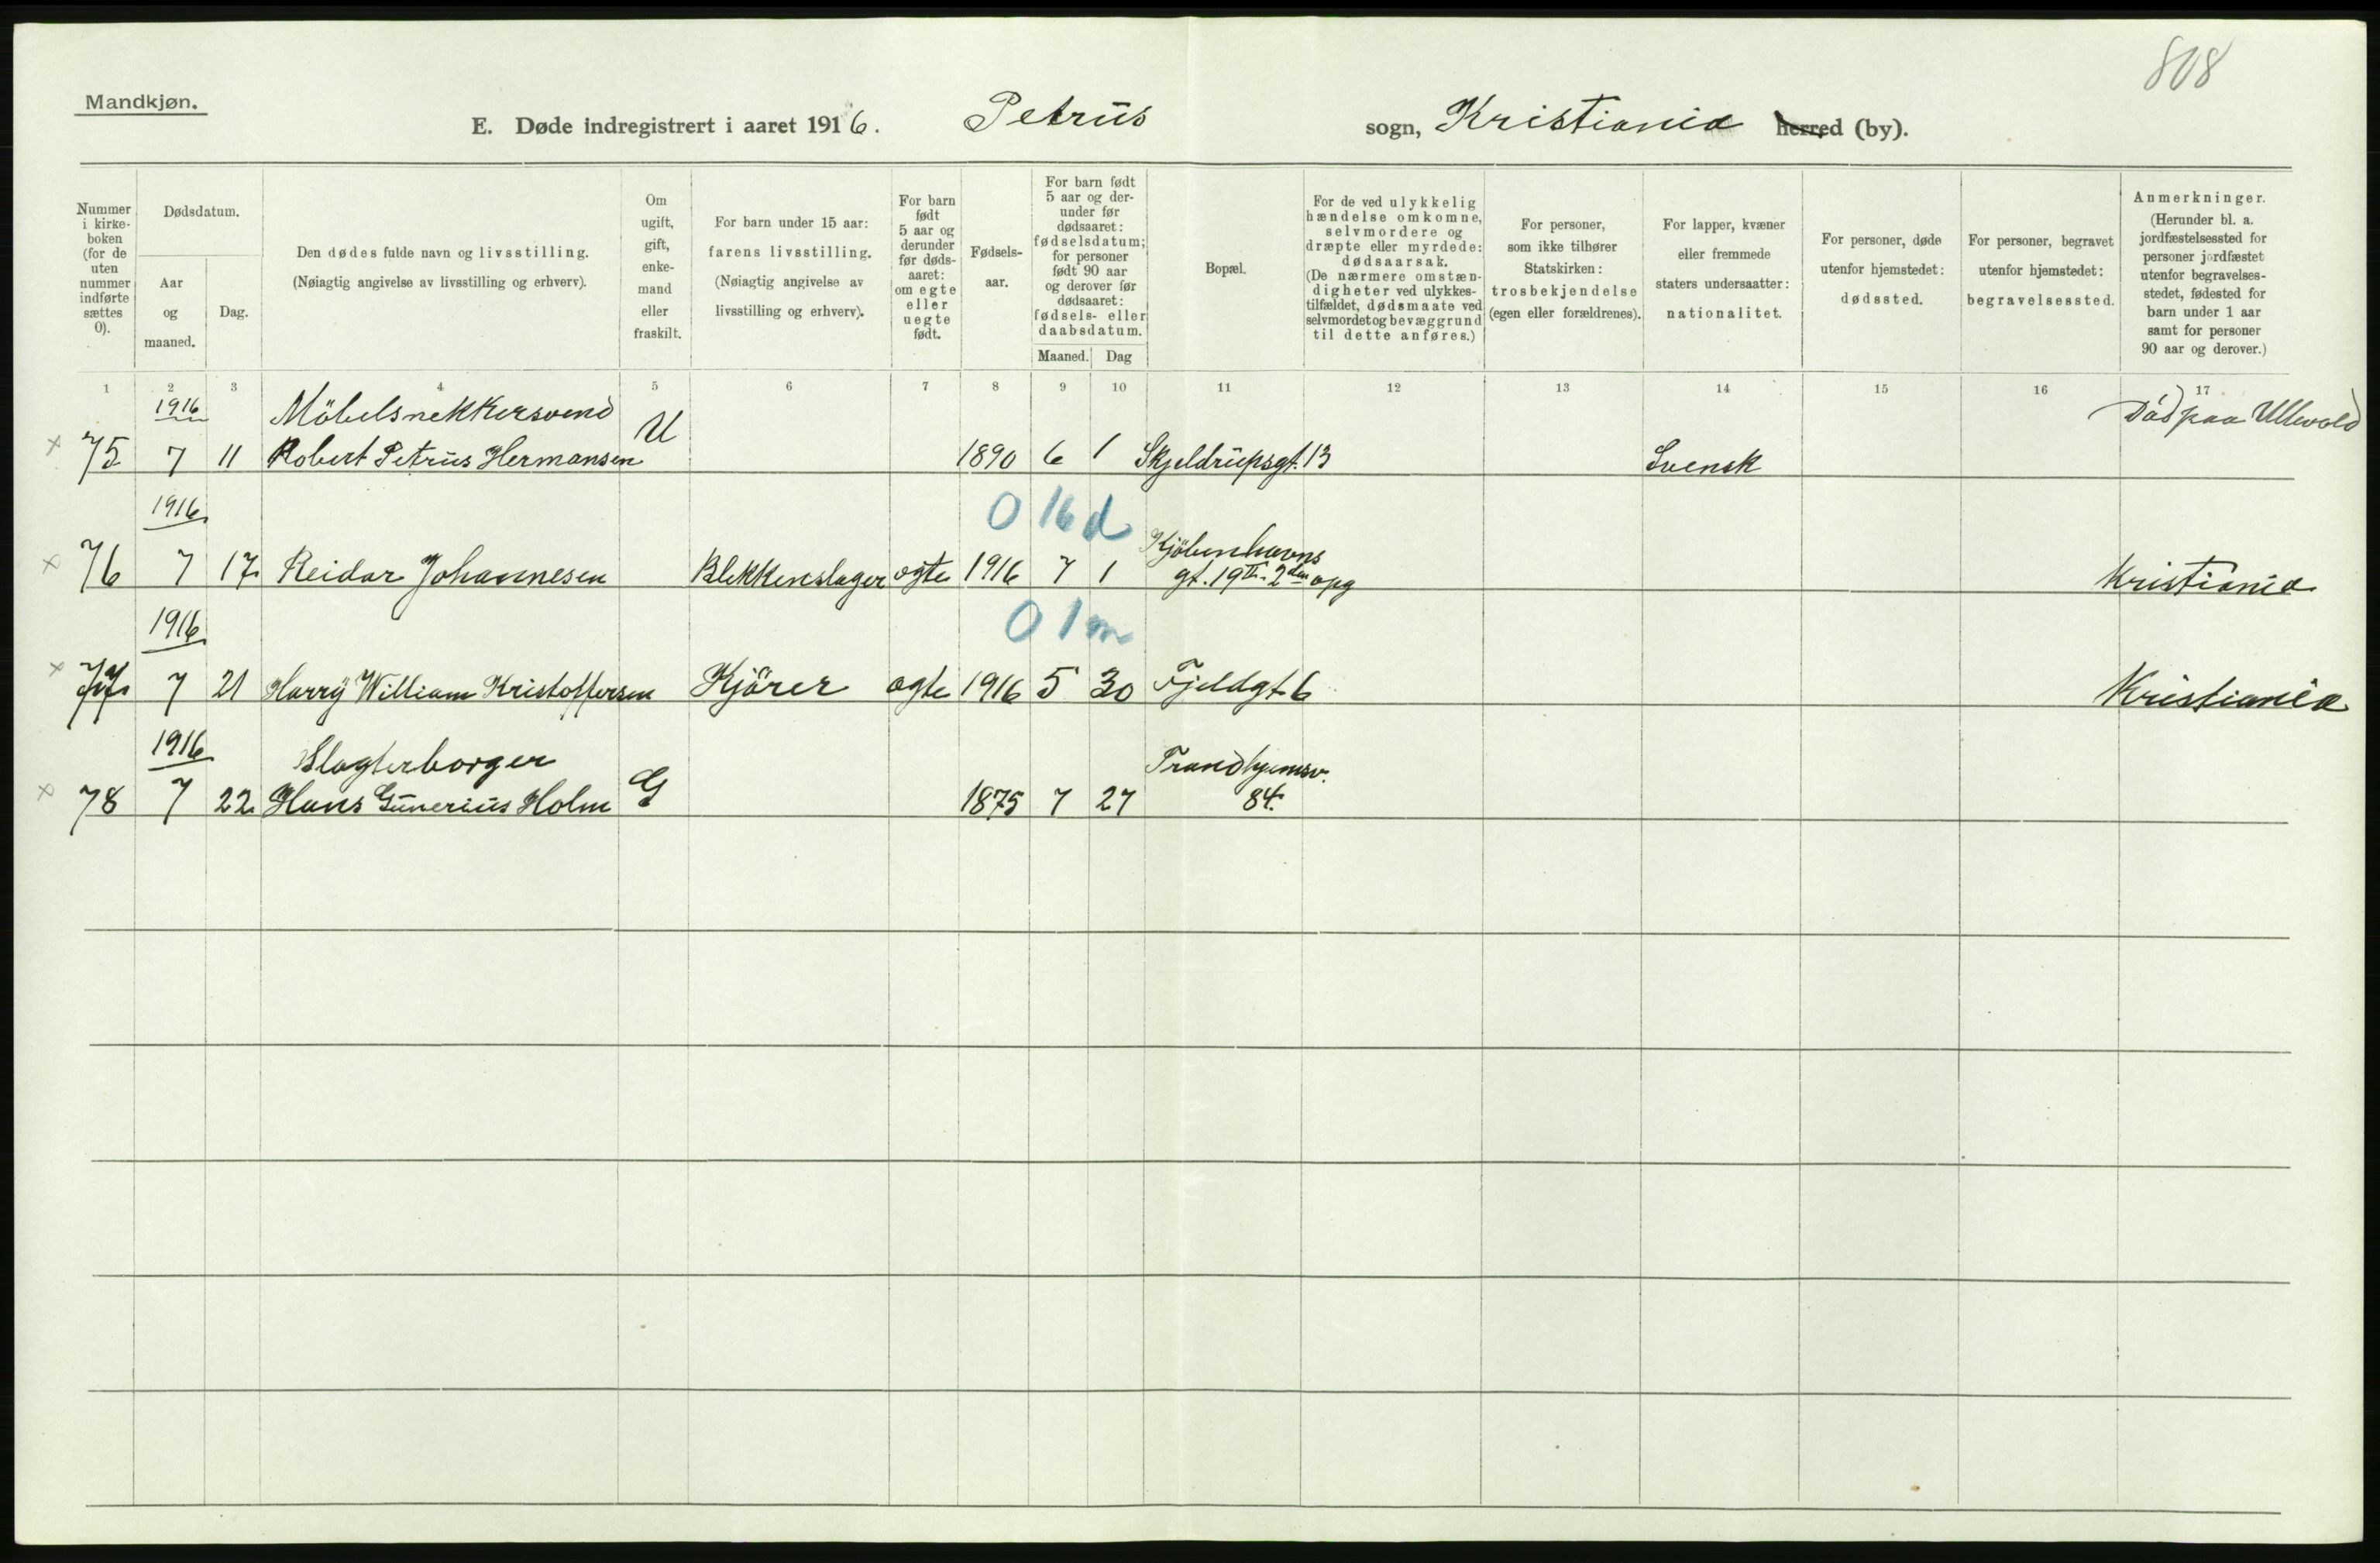 808
Mandkjøn.
E. Døde indregistrert i aaret 1916. Petrus sogn, Kristiania herred (by).
Nummer i kirke-boken (for de uten nummer indførte sættes 0).
Dødsdatum.
Aar og maaned.
Dag.
Den dødes fulde navn og livsstilling.
(Nøiagtig angivelse av livsstilling og erhverv).
Om ugift, gift, enke-mand eller fraskilt.
For barn under 15 aar: farens livsstilling.
(Nøiagtig angivelse av livsstilling og erhverv).
For barn født 5 aar og derunder før døds-aaret: om egte eller uegte født.
Fødsels-aar.
For barn født 5 aar og der-under før dødsaaret: fødselsdatum; for personer født 90 aar og derover før dødsaaret: fødsels- eller daabsdatum.
Maaned. Dag
Bopæl.
For de ved ulykkelig hændelse omkomne, selvmordere og dræpte eller myrdede: dødsaarsak.
(De nærmere omstæn-digheter ved ulykkes-tilfældet, dødsmaate ved selvmordet og bevæggrund til dette anføres.)
For personer, som ikke tilhører Statskirken: trosbekjendelse (egen eller forældrenes).
For lapper, kvæner eller fremmede staters undersaatter: nationalitet.
For personer, døde utenfor hjemstedet: dødssted.
For personer, begravet utenfor hjemstedet: begravelsessted.
Anmerkninger.
(Herunder bl. a. jordfæstelsessted for personer jordfæstet utenfor begravelses-stedet, fødested for barn under 1 aar samt for personer 90 aar og derover.)
1 2 3 4 5 6 7 8 9 10 11 12 13 14 15 16 17
1916 Möbelsnekkersvend Död paa Ullevold
× 75 7 11 Robert Petrus Hermansen U 1890 6 1 Skjeldrupsgt. 13 Svensk
1916 0 16 d Kjöbenhavns
× 76 7 17 Reidar Johannesen Blikkenslager egte 1916 7 1 gt. 19 II. 2den opg Kristiania
1916 0 1 m
× 77 7 21 Harry William Kristoffersen Kjörer egte 1916 5 30 Fjeldgt. 6 Kristiania
1916 Slagterborger Trondhjemsv.
× 78 7 22 Hans Gunerius Holm G 1875 7 27 84.